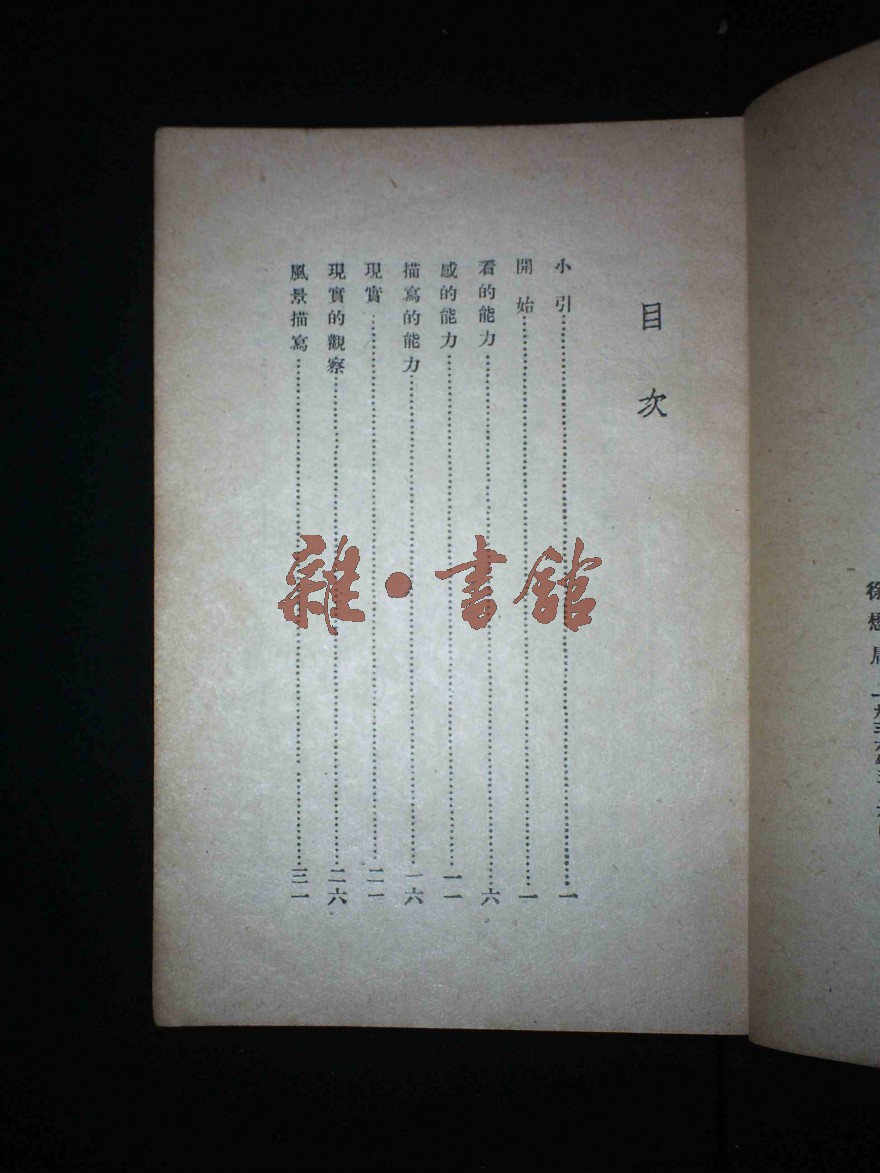 目次
小引……一
開始……一
看的能力……六
感的能力……一一
描寫的能力……一六
現實……二一
現實的觀察……二六
風景描寫……三一
雜·書館
徐懋庸